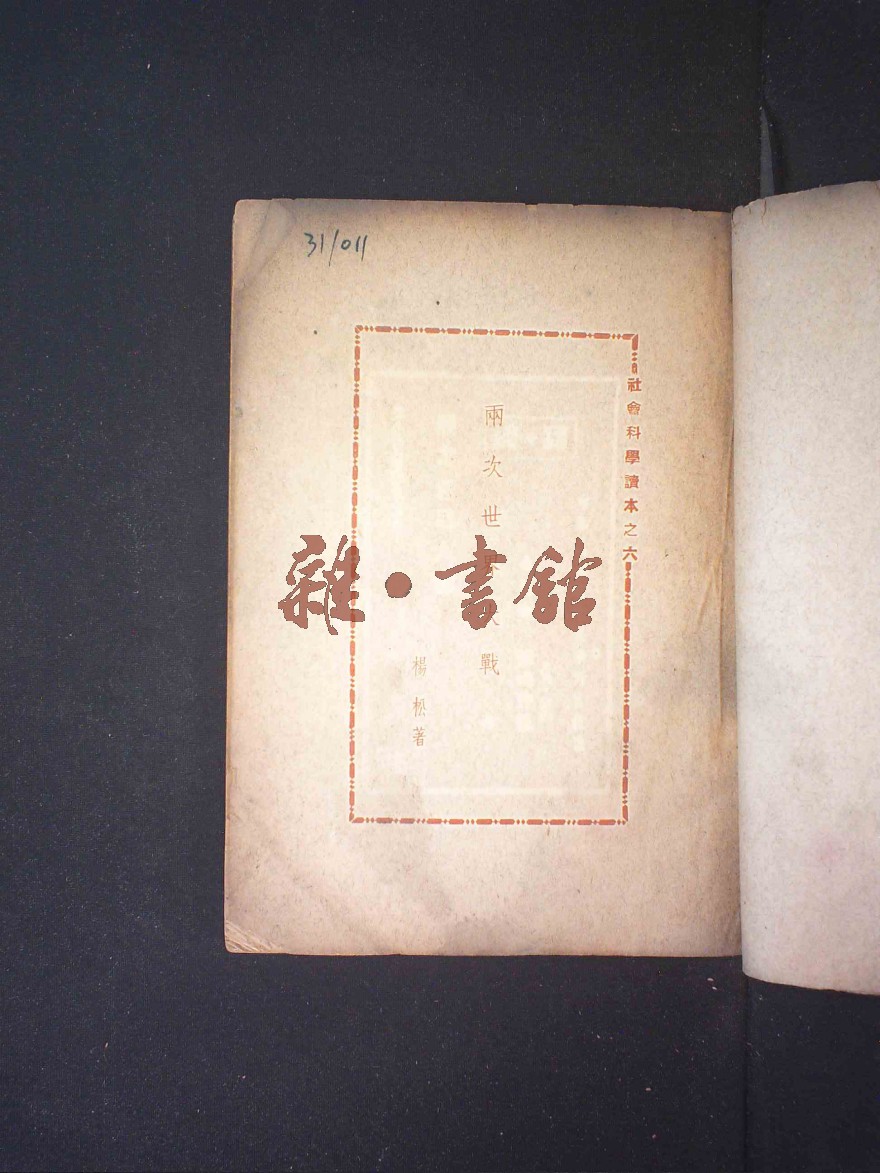 31/011
社會科學讀本之六
兩次世界大戰
楊松著
雜•書舘